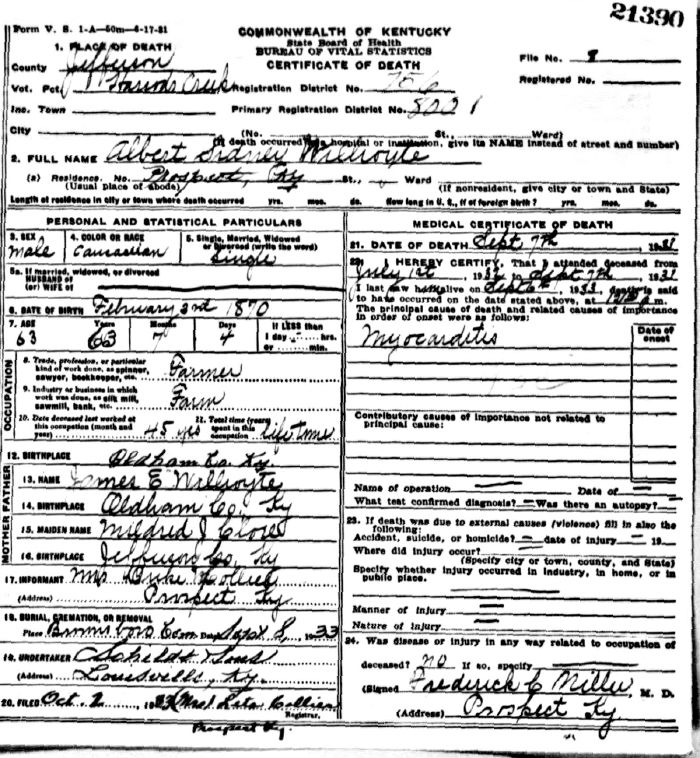 21390
Form V. S. 1-A—50m—4-17-31
COMMONWEALTH OF KENTUCKY
State Board of Health
BUREAU OF VITAL STATISTICS
CERTIFICATE OF DEATH
1. PLACE OF DEATH
County Jefferson
File No. 8
Vot. Pct. Harrods Creek Registration District No. 756
Registered No.
Inc. Town Primary Registration District No. 8021
City (No. St., Ward)
(If death occurred in a hospital or institution, give its NAME instead of street and number)
2. FULL NAME Albert Sidney Willhoyte
(a) Residence. No. Prospect, Ky St., Ward
(Usual place of abode) (If nonresident, give city or town and State)
Length of residence in city or town where death occurred yrs. mos. ds. How long in U. S., if of foreign birth? yrs. mos. ds.
PERSONAL AND STATISTICAL PARTICULARS
3. SEX male
4. COLOR OR RACE Caucasian
5. Single, Married, Widowed or Divorced (write the word) Single
5a. If married, widowed, or divorced
HUSBAND of
(or) WIFE of
6. DATE OF BIRTH February 3rd 1870
7. AGE Years Months Days If LESS than
63 63 7 4 1 day hrs.
or min.
OCCUPATION
8. Trade, profession, or particular kind of work done, as spinner, sawyer, bookkeeper, etc. Farmer
9. Industry or business in which work was done, as silk mill, sawmill, bank, etc. Farm
10. Date deceased last worked at this occupation (month and year) 45 yrs
11. Total time (years) spent in this occupation life time
12. BIRTHPLACE Oldham Co. Ky
FATHER
13. NAME James E Willhoyte
14. BIRTHPLACE Oldham Co, Ky
MOTHER
15. MAIDEN NAME Mildred J Clore
16. BIRTHPLACE Jefferson Co, Ky
17. INFORMANT Mrs Duke Collier
(Address) Prospect Ky.
18. BURIAL, CREMATION, OR REMOVAL
Place Cem Date Sept 8, 1933
19. UNDERTAKER Schildt Sons
(Address) Louisville, Ky.
20. FILED Oct. 2 1933 Mrs Collier
Registrar.
Prospect Ky.
MEDICAL CERTIFICATE OF DEATH
21. DATE OF DEATH Sept 7th, 1931
22. I HEREBY CERTIFY, That I attended deceased from
July 1st, 1932 to Sept 7th, 1931
I last saw him alive on Sept 6th, 1933, death is said
to have occurred on the date stated above, at m.
The principal cause of death and related causes of importance
in order of onset were as follows:
Date of onset
Myocarditis
Contributory causes of importance not related to
principal cause:
Name of operation Date of
What test confirmed diagnosis? Was there an autopsy?
23. If death was due to external causes (violence) fill in also the
following:
Accident, suicide, or homicide? date of injury 19
Where did injury occur?
(Specify city or town, county, and State)
Specify whether injury occurred in industry, in home, or in
public place.
Manner of injury
Nature of injury
24. Was disease or injury in any way related to occupation of
deceased? no If so, specify
(Signed Frederick C Miller, M. D.
(Address) Prospect Ky